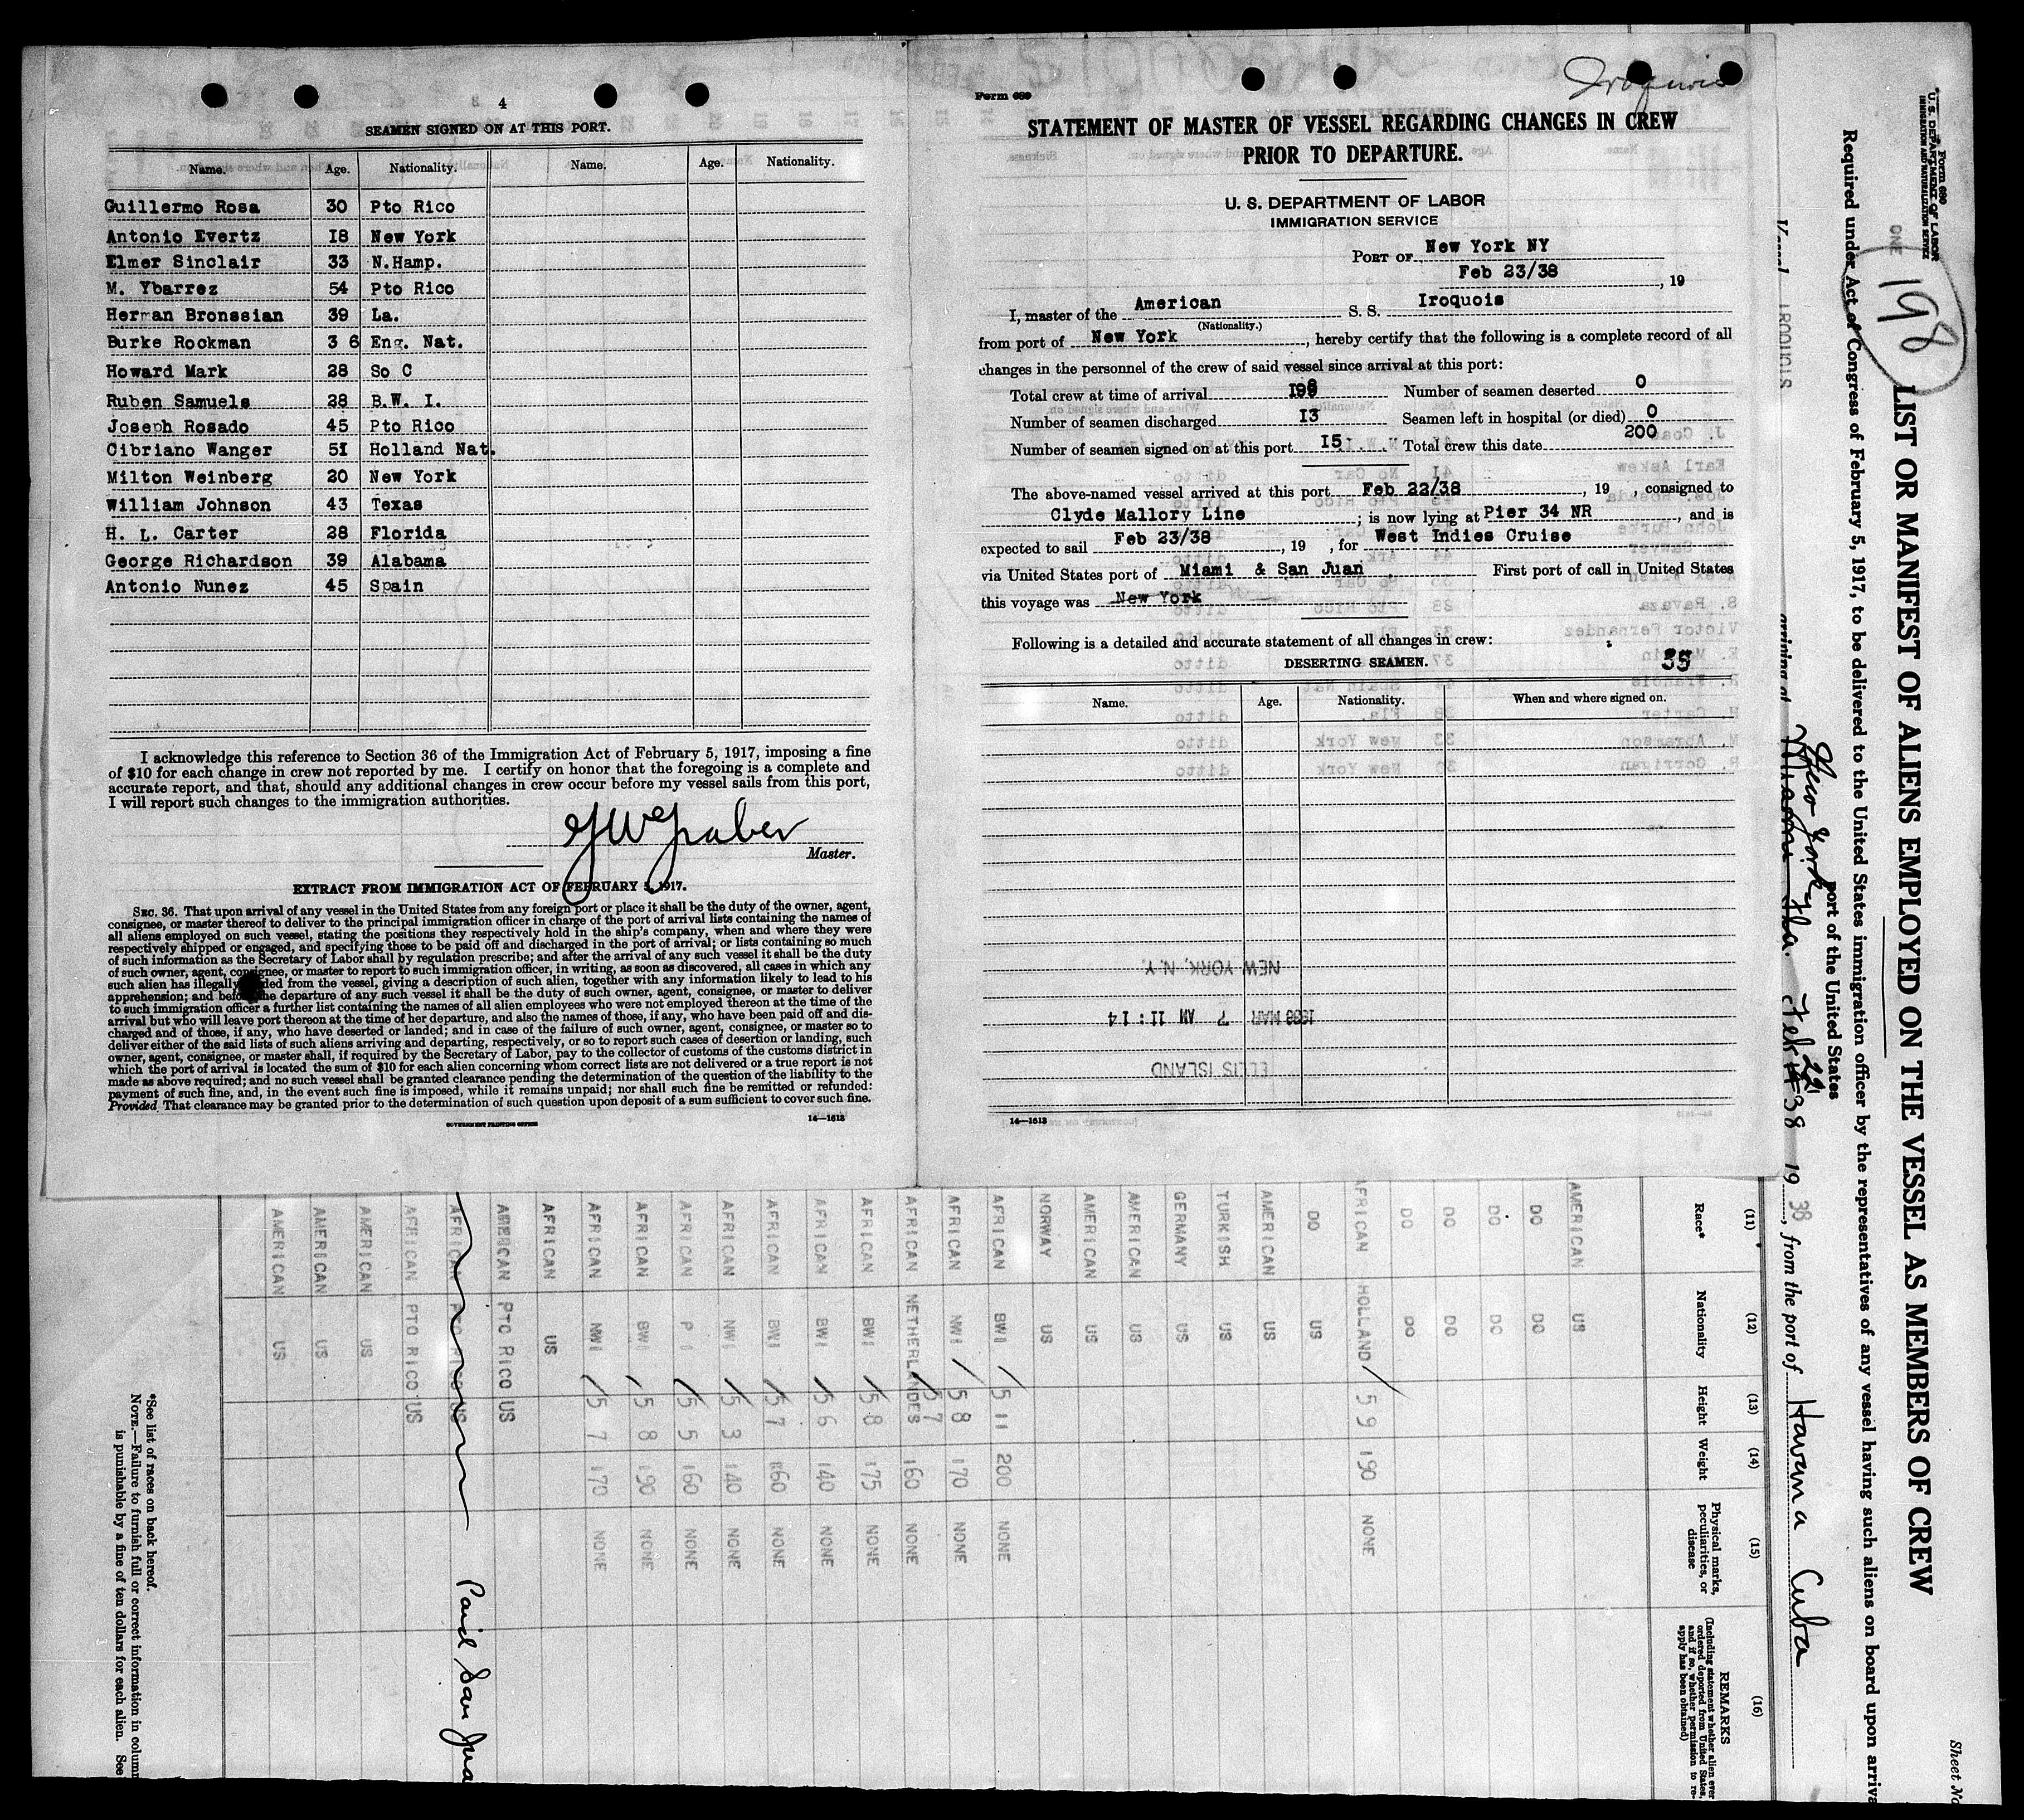 4
SEAMEN SIGNED ON AT THIS PORT.
Name. Age. Nationality. Name. Age. Nationality.
Guillermo Rosa 30 Pto Rico
Antonio Evertz I8 New York
Elmer Sinclair 33 N.Hamp.
M. Ybarrez 54 Pto Rico
Herman Bronssian 39 La.
Burke Rockman 3 6 Eng. Nat.
Howard Mark 28 So C
Ruben Samuels 28 B.W. I.
Joseph Rosado 45 Pto Rico
Cibriano Wanger 5I Holland Nat.
Milton Weinberg 20 New York
William Johnson 43 Texas
H. L. Carter 28 Florida
George Richardson 39 Alabama
Antonio Nunez 45 Spain
I acknowledge this reference to Section 36 of the Immigration Act of February 5, 1917, imposing a fine
of $10 for each change in crew not reported by me. I certify on honor that the foregoing is a complete and
accurate report, and that, should any additional changes in crew occur before my vessel sails from this port,
I will report such changes to the immigration authorities.
Master.
EXTRACT FROM IMMIGRATION ACT OF FEBRUARY 5, 1917.
SEC. 36. That upon arrival of any vessel in the United States from any foreign port or place it shall be the duty of the owner, agent,
consignee, or master thereof to deliver to the principal immigration officer in charge of the port of arrival lists containing the names of
all aliens employed on such vessel, stating the positions they respectively hold in the ship's company, when and where they were
respectively shipped or engaged, and specifying those to be paid off and discharged in the port of arrival; or lists containing so much
of such information as the Secretary of Labor shall by regulation prescribe; and after the arrival of any such vessel it shall be the duty
of such owner, agent, consignee, or master to report to such immigration officer, in writing, as soon as discovered, all cases in which any
such alien has illegally landed from the vessel, giving a description of such alien, together with any information likely to lead to his
apprehension; and before the departure of any such vessel it shall be the duty of such owner, agent, consignee, or master to deliver
to such immigration officer a further list containing the names of all alien employees who were not employed thereon at the time of the
arrival but who will leave port thereon at the time of her departure, and also the names of those, if any, who have been paid off and dis-
charged and of those, if any, who have deserted or landed; and in case of the failure of such owner, agent, consignee, or master so to
deliver either of the said lists of such aliens arriving and departing, respectively, or so to report such cases of desertion or landing, such
owner, agent, consignee, or master shall, if required by the Secretary of Labor, pay to the collector of customs of the customs district in
which the port of arrival is located the sum of $10 for each alien concerning whom correct lists are not delivered or a true report is not
made as above required; and no such vessel shall be granted clearance pending the determination of the question of the liability to the
payment of such fine, and, in the event such fine is imposed, while it remains unpaid; nor shall such fine be remitted or refunded:
Provided, That clearance may be granted prior to the determination of such question upon deposit of a sum sufficient to cover such fine.
GOVERNMENT PRINTING OFFICE 14—1613
Form 689
Iroquois
STATEMENT OF MASTER OF VESSEL REGARDING CHANGES IN CREW
PRIOR TO DEPARTURE.
U. S. DEPARTMENT OF LABOR
IMMIGRATION SERVICE
PORT OF New York NY
Feb 23/38, 19
I, master of the American S. S. Iroquois
(Nationality.)
from port of New York, hereby certify that the following is a complete record of all
changes in the personnel of the crew of said vessel since arrival at this port:
Total crew at time of arrival I98 Number of seamen deserted 0
Number of seamen discharged I3 Seamen left in hospital (or died) 0
Number of seamen signed on at this port I5 Total crew this date 200
The above-named vessel arrived at this port Feb 22/38, 19 , consigned to
Clyde Mallory Line; is now lying at Pier 34 NR, and is
expected to sail Feb 23/38, 19 , for West Indies Cruise
via United States port of Miami & San Juan First port of call in United States
this voyage was New York
Following is a detailed and accurate statement of all changes in crew:
DESERTING SEAMEN. 35
Name. Age. Nationality. When and where signed on.
NEW YORK, N.Y.
1938 MAR 7 AM 11:14
ELLIS ISLAND
14—1613
Form 680
U. S. DEPARTMENT OF LABOR
IMMIGRATION AND NATURALIZATION SERVICE
ONE
198
LIST OR MANIFEST OF ALIENS EMPLOYED ON THE VESSEL AS MEMBERS OF CREW
Sheet No
Required under Act of Congress of February 5, 1917, to be delivered to the United States immigration officer by the representatives of any vessel having such aliens on board upon arriva
port of the United States
Vessel IROQUOIS arriving at New York Miami Fla. Feb 22 38 19 38, from the port of Havana Cuba
(11) (12) (13) (14) (15) (16)
Race* Nationality Height Weight Physical marks, peculiarities, or disease REMARKS
(Including statement whether alien ever ordered deported from United States, and if so, whether permission to reapply has been obtained)
AMERICAN US
DO DO
DO DO
DO DO
DO DO
AFRICAN HOLLAND 5 9 190 NONE
DO US
AMERICAN US
TURKISH US
GERMANY US
AMERICAN US
AMERICAN US
NORWAY US
AFRICAN BWI 5 11 200 NONE
AFRICAN NWI 5 8 170 NONE
AFRICAN NETHERLANDES 5 7 160 NONE
AFRICAN BWI 5 8 175 NONE
AFRICAN BWI 5 6 140 NONE
AFRICAN BWI 5 7 160 NONE
AFRICAN NWI 5 3 140 NONE
AFRICAN P I 5 5 160 NONE
AFRICAN BWI 5 8 190 NONE
AFRICAN NWI 5 7 170 NONE
AFRICAN US
AMERICAN PTO RICO US
AFRICAN PTO RICO US Paid San Jua
AFRICAN PTO RICO US
AMERICAN US
AMERICAN US
AMERICAN US
*See list of races on back hereof.
NOTE.—Failure to furnish full or correct information in column
is punishable by a fine of ten dollars for each alien. See